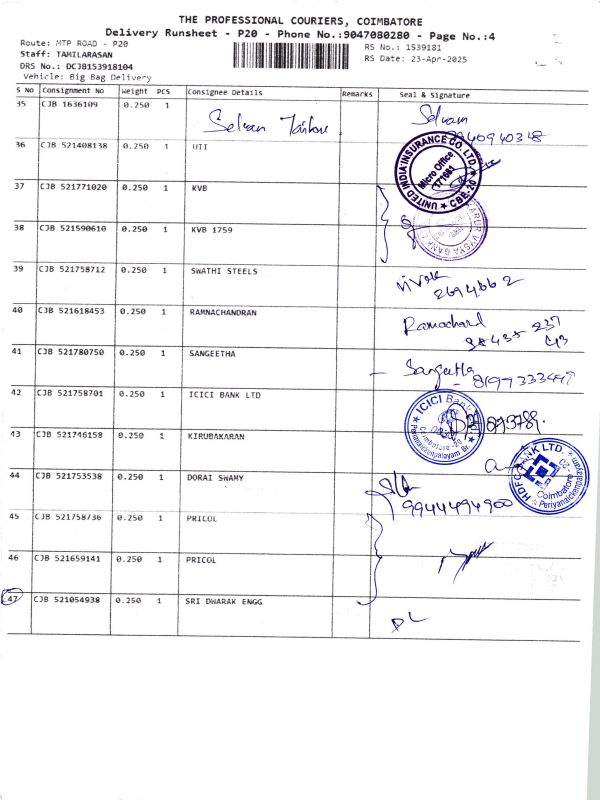 THE PROFESSIONAL COURIERS, COIMBATORE
Delivery Runsheet - P20 - Phone No.:9047080280 - Page No.:4
Route: MTP ROAD - P20
RS No.: 1539181
Staff: TAMILARASAN
RS Date: 23-Apr-2025
DRS No.: DCJB153918104
Vehicle: Big Bag Delivery
S No Consignment No Weight PCS Consignee Details Remarks Seal & Signature
35 CJB 1636109 0.250 1 Selvam
36 CJB 521408138 0.250 1 UII
UNITED INDIA INSURANCE CO. LTD. Micro Office 171681 CBE-20
37 CJB 521771020 0.250 1 KVB
38 CJB 521590610 0.250 1 KVB 1759
39 CJB 521758712 0.250 1 SWATHI STEELS
40 CJB 521618453 0.250 1 RAMNACHANDRAN
41 CJB 521780750 0.250 1 SANGEETHA Sangeetha
42 CJB 521758701 0.250 1 ICICI BANK LTD
ICICI Bank Periyanaickenpalayam Br. Coimbatore-20
43 CJB 521746158 0.250 1 KIRUBAKARAN
HDFC BANK LTD. Coimbatore - 20 Periyanaickenpalayam
44 CJB 521753538 0.250 1 DORAI SWAMY 9944494900
45 CJB 521758736 0.250 1 PRICOL
46 CJB 521659141 0.250 1 PRICOL
47 CJB 521054938 0.250 1 SRI DWARAK ENGG